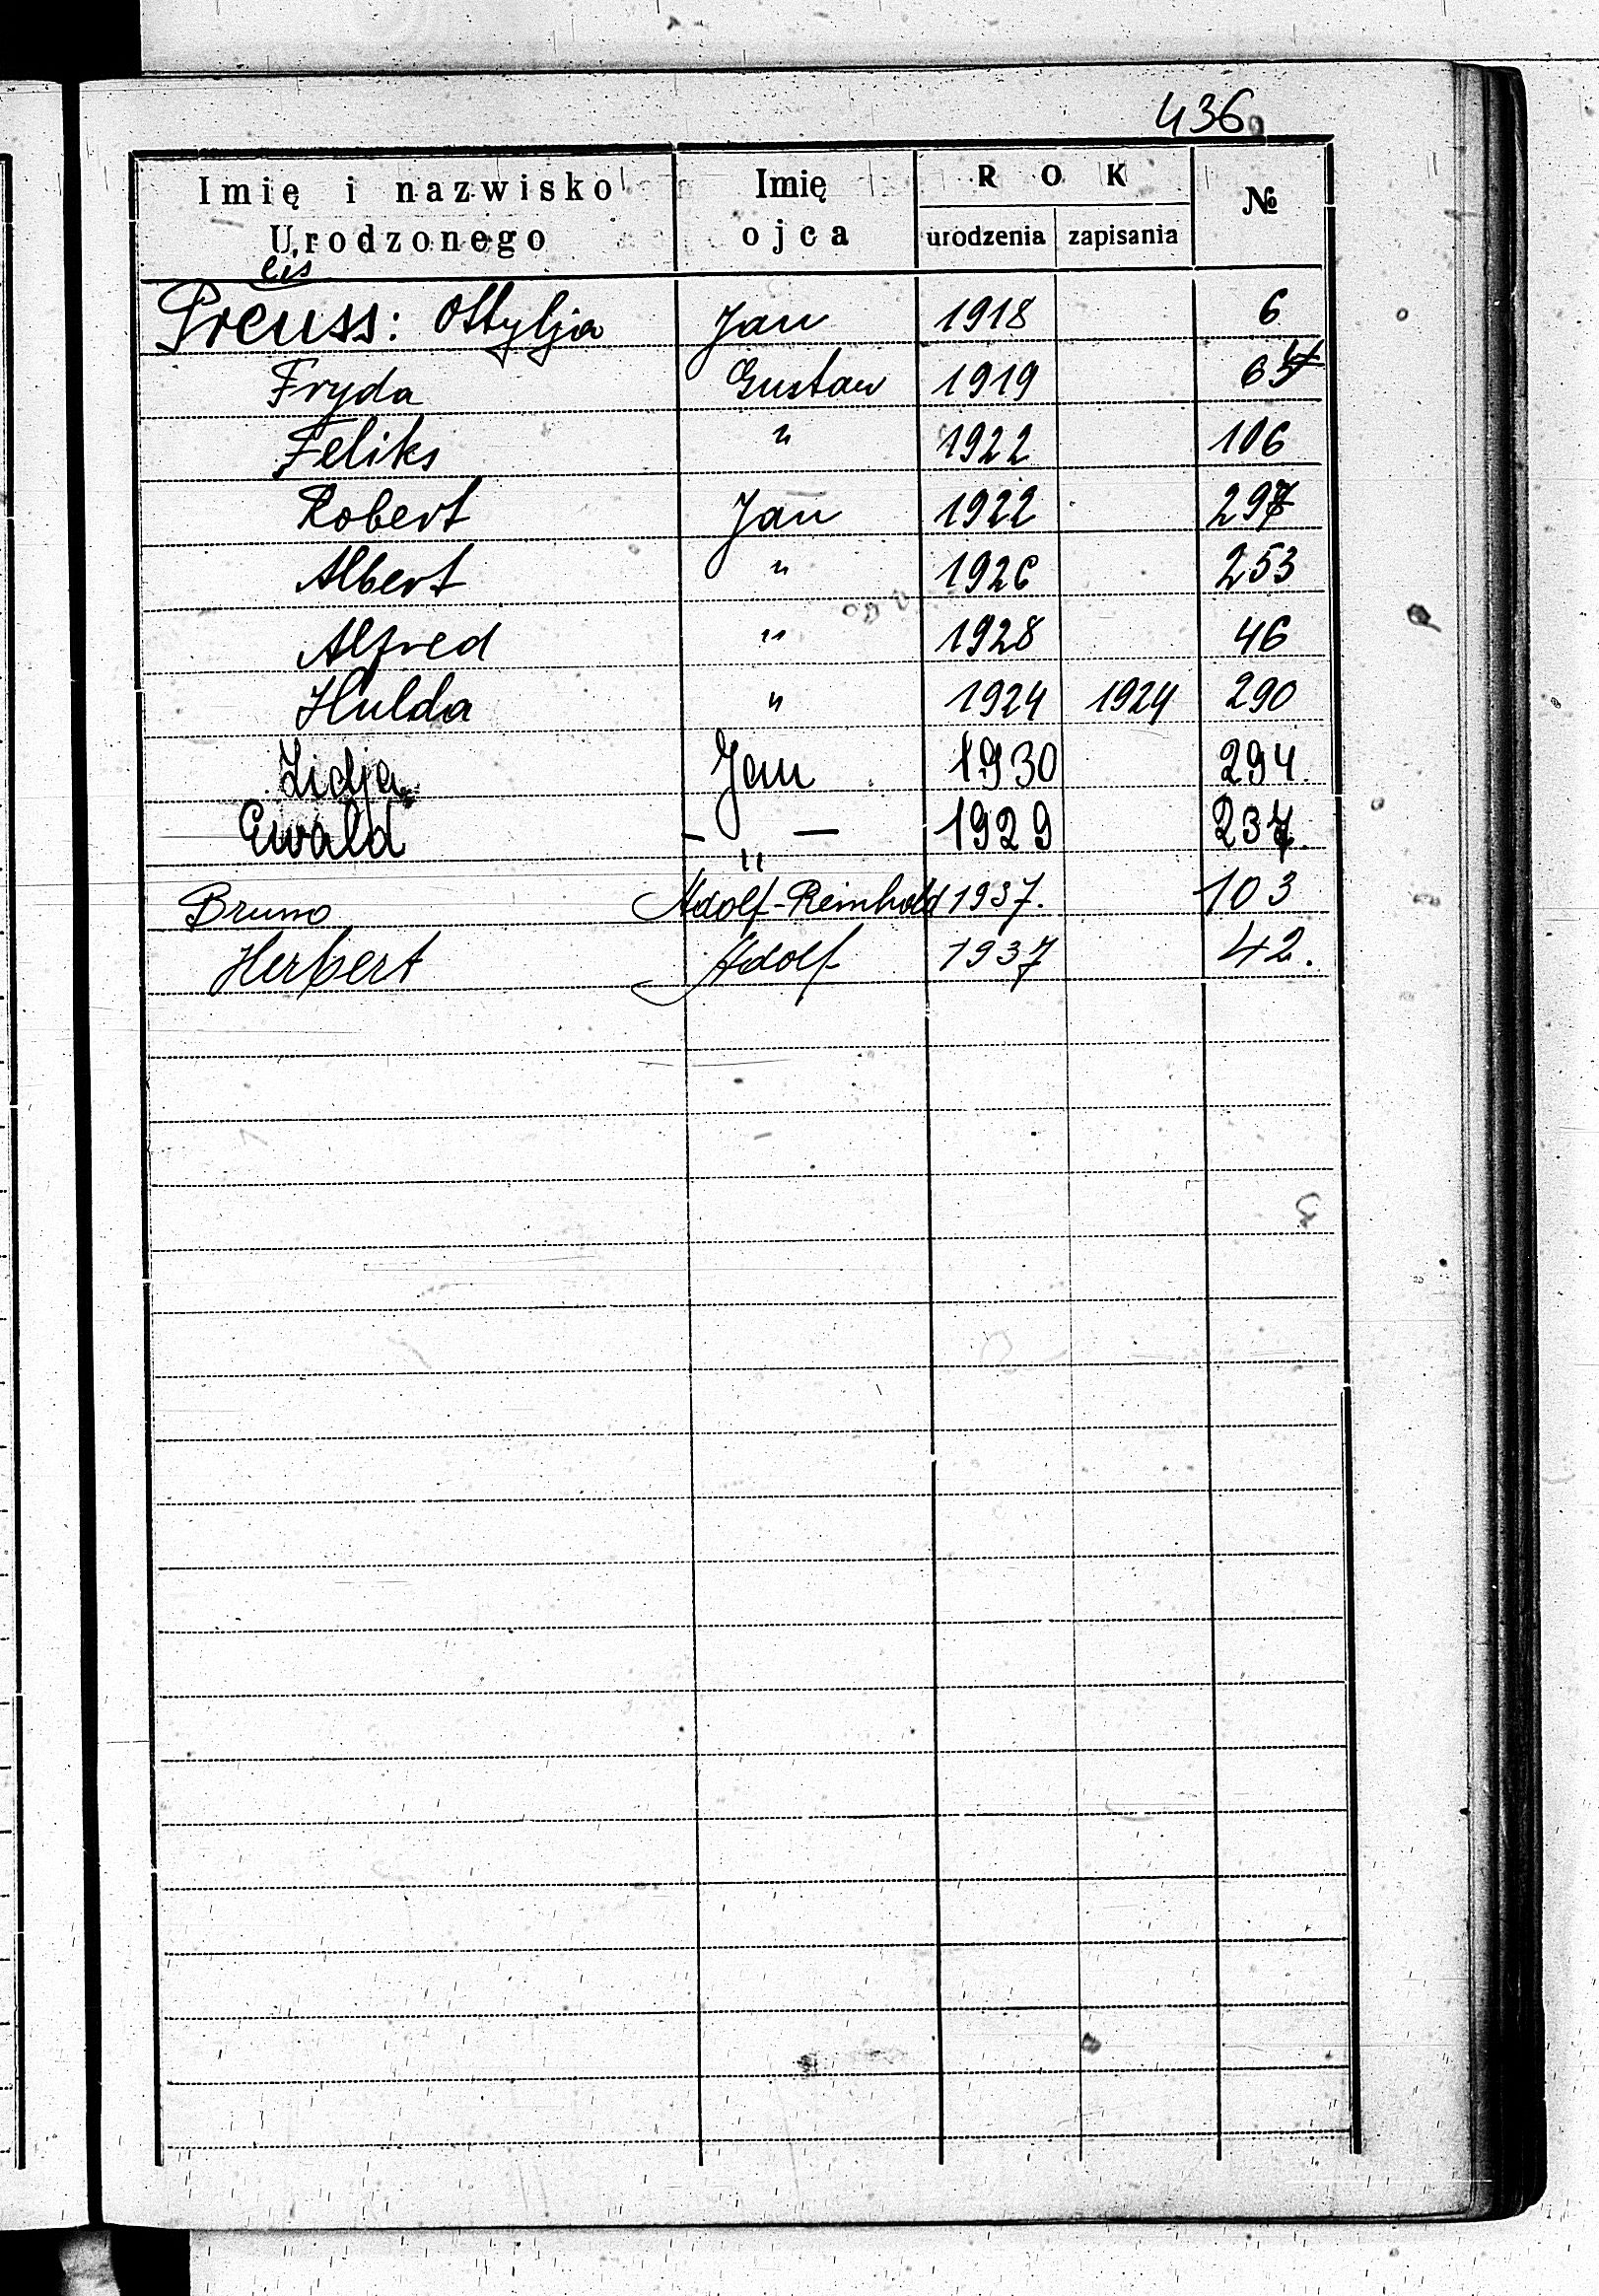 436
Imię i nazwisko Urodzonego Imię ojca ROK urodzenia zapisania №
eis
Preuss: Ottylja Jan 1918 6
Fryda Gustaw 1919 64
Feliks " 1922 106
Robert Jan 1922 297
Albert " 1926 253
Alfred " 1928 46
Hulda " 1924 1924 290
Lidja Jan 1930 294.
Ewald – " – 1929 237.
Bruno Adolf-Reinhold 1937. 103
Herbert Adolf 1937 42.